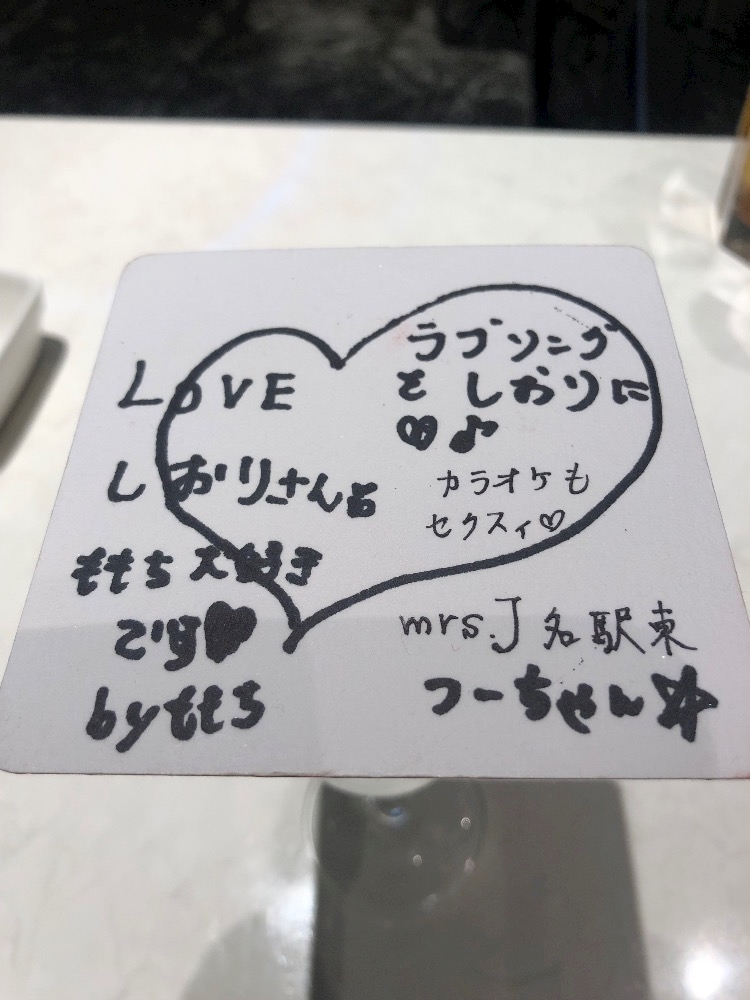 LOVE
しおりさんも
ももち大好き
です♥
byももち
ラブソング
をしおりに
♡♪
カラオケも
セクスィ♡
mrs.J 名駅東
つーちゃん☆